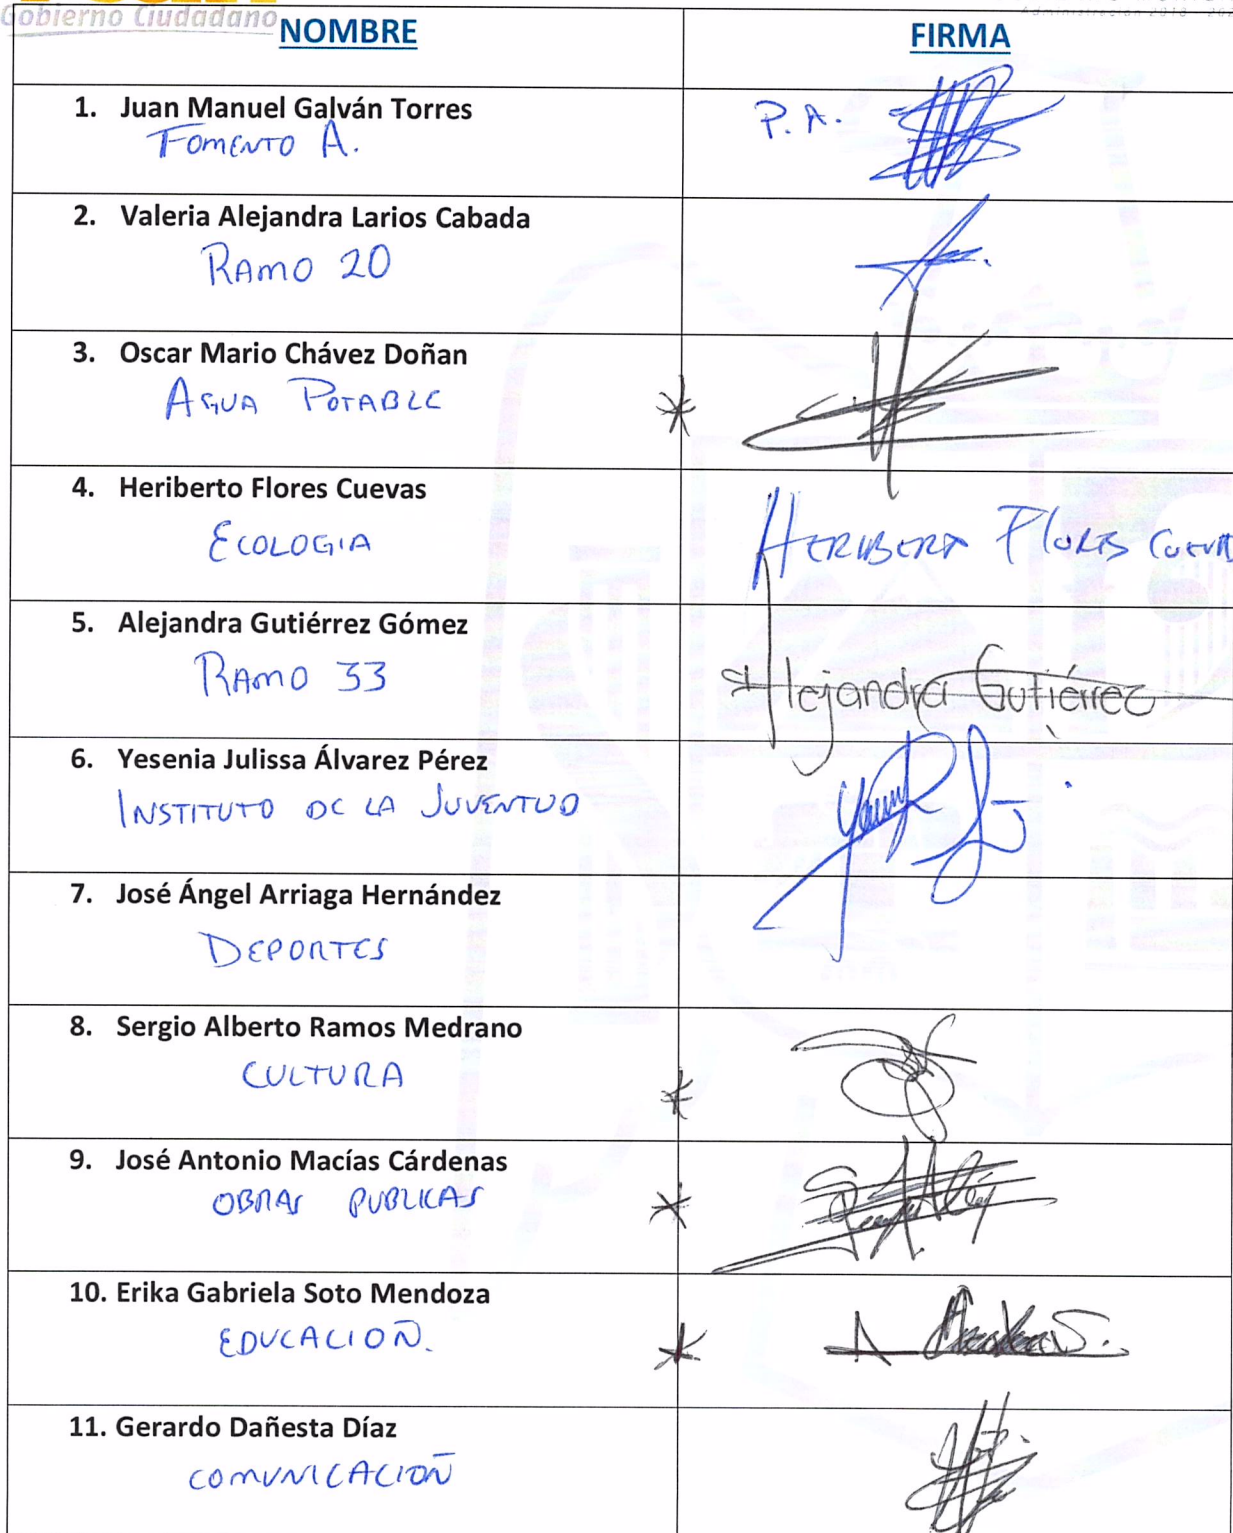 Gobierno Ciudadano
NOMBRE
FIRMA
1. Juan Manuel Galván Torres
FOMENTO A.
P. A.
2. Valeria Alejandra Larios Cabada
RAMO 20
3. Oscar Mario Chávez Doñan
AGUA POTABLE
*
4. Heriberto Flores Cuevas
ECOLOGIA
HERIBERTO FLORES CUEVA
5. Alejandra Gutiérrez Gómez
RAMO 33
Alejandra Gutiérrez
6. Yesenia Julissa Álvarez Pérez
INSTITUTO DE LA JUVENTUD
7. José Ángel Arriaga Hernández
DEPORTES
8. Sergio Alberto Ramos Medrano
CULTURA
*
9. José Antonio Macías Cárdenas
OBRAS PUBLICAS
*
10. Erika Gabriela Soto Mendoza
EDUCACIOÑ.
*
11. Gerardo Dañesta Díaz
COMUNICACIOÑ